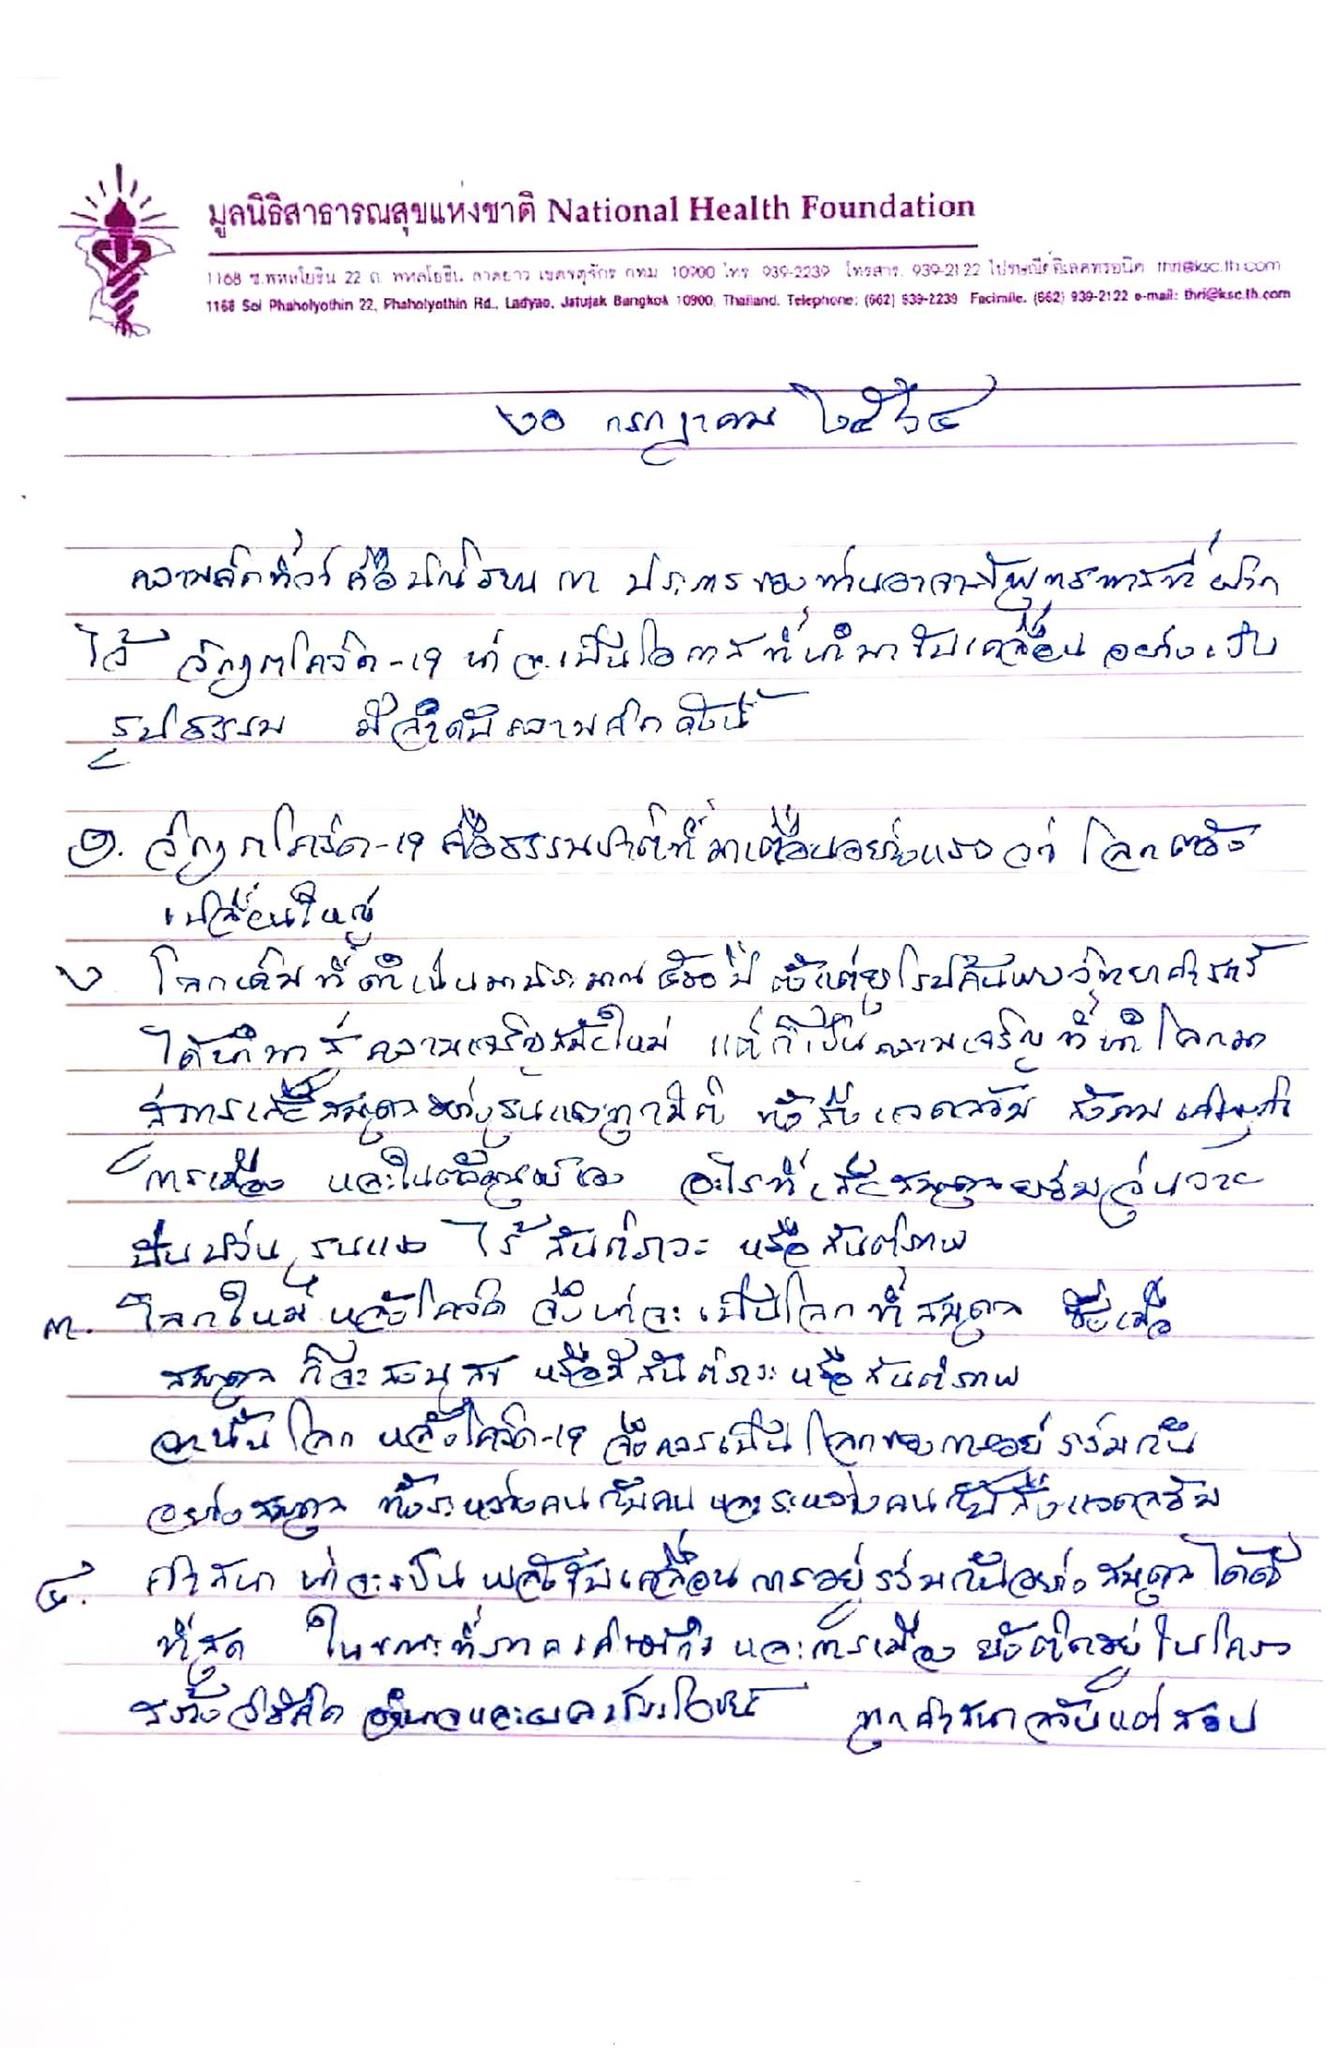 มูลนิธิสาธารณสุขแห่งชาติ National Health Foundation
1168 ซ.พหลโยธิน 22 ถ. พหลโยธิน. ลาดยาว เขตจตุจักร กทม 10900 โทร 939-2239 โทรสาร. 939-2122 ไปรษณีย์อิเลคทรอนิค thri@ksc.th.com
1168 Soi Phaholyothin 22, Phaholyothin Rd., Ladyao, Jatujak Bangkok 10900, Thailand. Telephone: (662) 939-2239 Facimile. (662) 939-2122 e-mail: thri@ksc.th.com
๒๐ กรกฎาคม ๒๕๖๔
ความคิดที่ว่า คือปณิธาน ๓ ประการ ของท่านอาจารย์พุทธทาสที่ฝาก
ไว้ วิกฤตโควิด-19 น่าจะเป็นโอกาสที่นำมาขับเคลื่อน อย่างเป็น
รูปธรรม มีลำดับความคิด ดังนี้
๑. วิกฤตโควิด-19 คือธรรมชาติที่มาเตือนอย่างแรงว่า โลกต้อง
เปลี่ยนใหญ่
๒ โลกเดิมที่ดำเนินมาประมาณ ๕๐๐ ปี ตั้งแต่ยุโรปค้นพบวิทยาศาสตร์
ได้นำมาสู่ความเจริญสมัยใหม่ แต่ก็เป็นความเจริญที่นำโลกมา
สู่การเสียสมดุลอย่างรุนแรงทุกมิติ ทั้งสิ่งแวดล้อม สังคม เศรษฐกิจ
การเมือง และในตัวมนุษย์เอง อะไรที่เสียสมดุลย่อมวุ่นวาย
ปั่นป่วน รุนแรง ไร้สันติภาวะ หรือสันติภาพ
๓. โลกใหม่หลังโควิด จึงน่าจะเป็นโลกที่สมดุล ซึ่งเมื่อ
สมดุล ก็จะสงบสุข หรือมีสันติภาวะ หรือสันติภาพ
ฉะนั้น โลกหลังโควิด-19 จึงควรเป็นโลกของการอยู่ร่วมกัน
อย่างสมดุล ทั้งระหว่างคนกับคน และระหว่างคนกับสิ่งแวดล้อม
๔. ศาสนา น่าจะเป็นพลังขับเคลื่อนการอยู่ร่วมกันอย่างสมดุลได้ดี
ที่สุด ในขณะที่ภาคเศรษฐกิจ และการเมือง ยังติดอยู่ในโครง
สร้างวิธีคิด อำนาจและผลประโยชน์ ทุกศาสนาล้วนแต่สอน